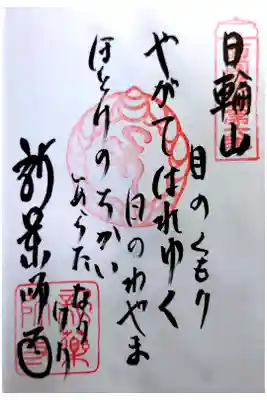 日輪山
目のくもり
やがてはれゆく
日のわやま
ほとけのちかい
あらたなりけり
新薬師寺